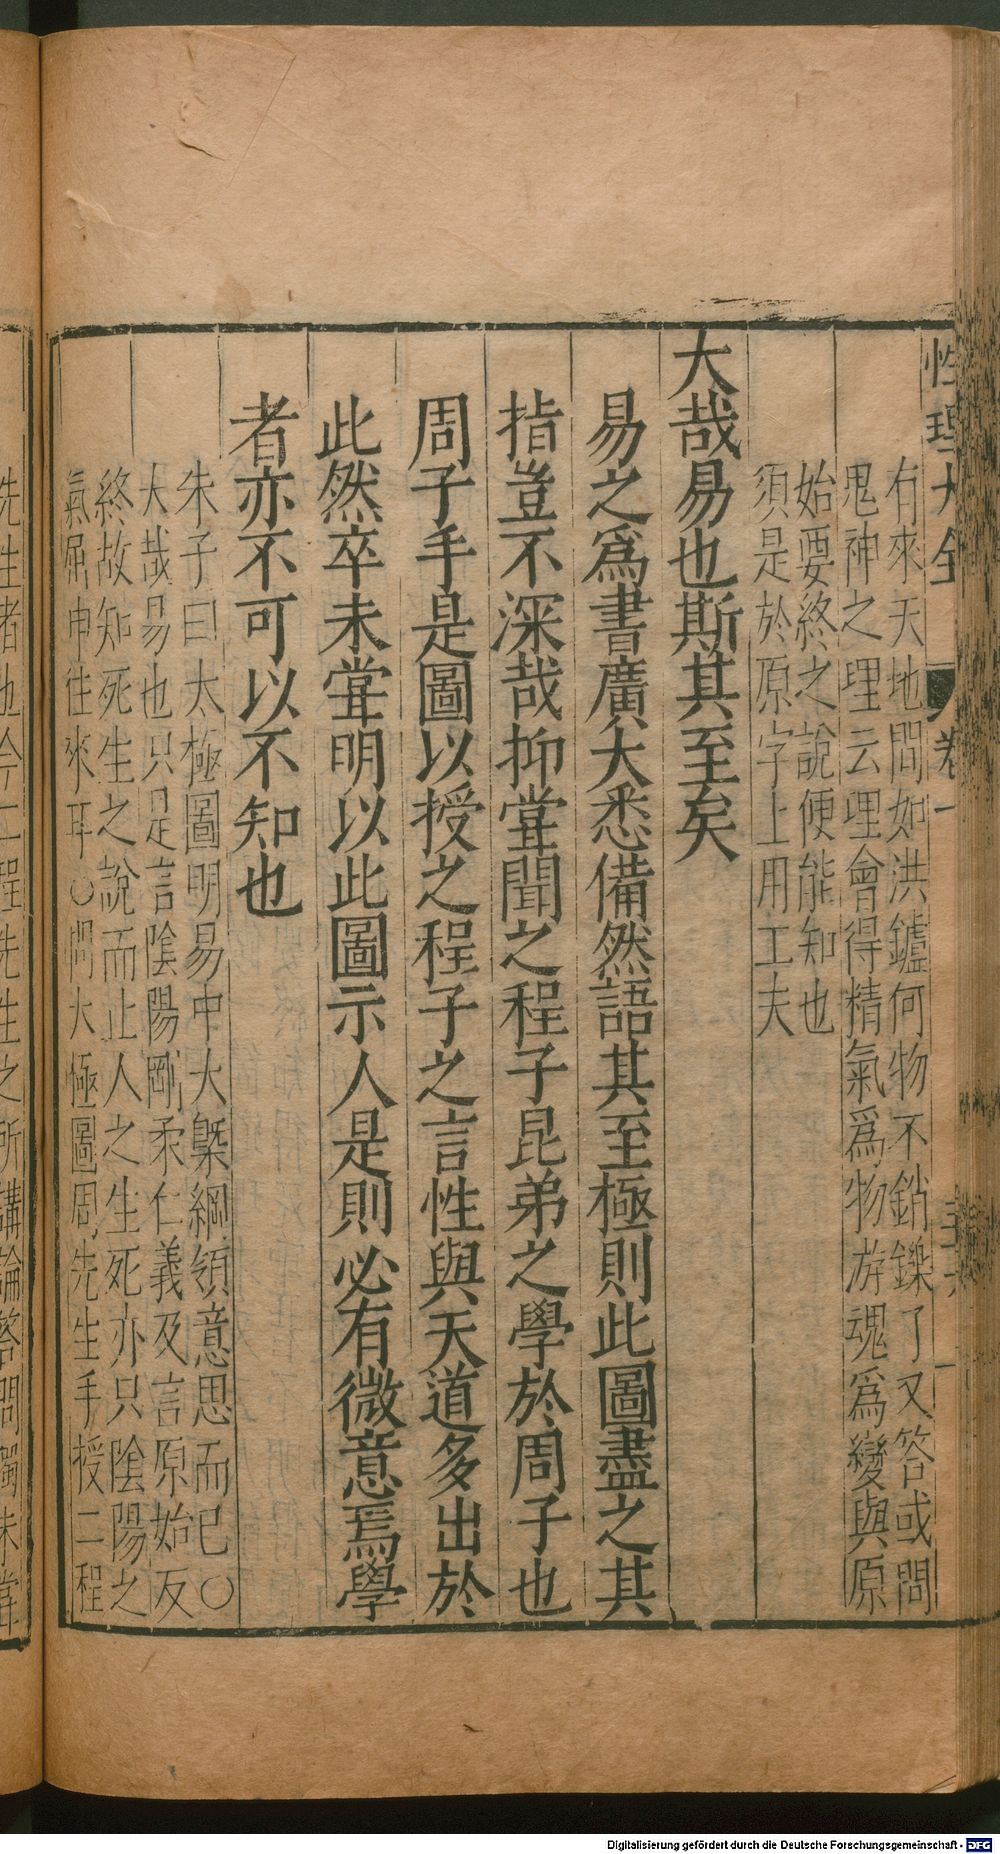 性理大全 卷一
有來天地間如洪鑪何物不銷鑠了又答或問
鬼神之理云理會得精氣爲物游魂爲變與原
始要終之說便能知也
須是於原字上用工夫
大哉易也斯其至矣
易之爲書廣大悉備然語其至極則此圖盡之其
指豈不深哉抑甞聞之程子昆弟之學於周子也
周子手是圖以授之程子之言性與天道多出於
此然卒未甞明以此圖示人是則必有微意焉學
者亦不可以不知也
朱子曰太極圖明易中大槩綱領意思而已○
大哉易也只是言陰陽剛柔仁義及言原始反
終故知死生之說而止人之生死亦只陰陽之
氣屈申往來耳○問太極圖周先生手授二程
先生者也今二程先生之所講論答問獨未甞
Digitalisierung gefördert durch die Deutsche Forschungsgemeinschaft - DFG